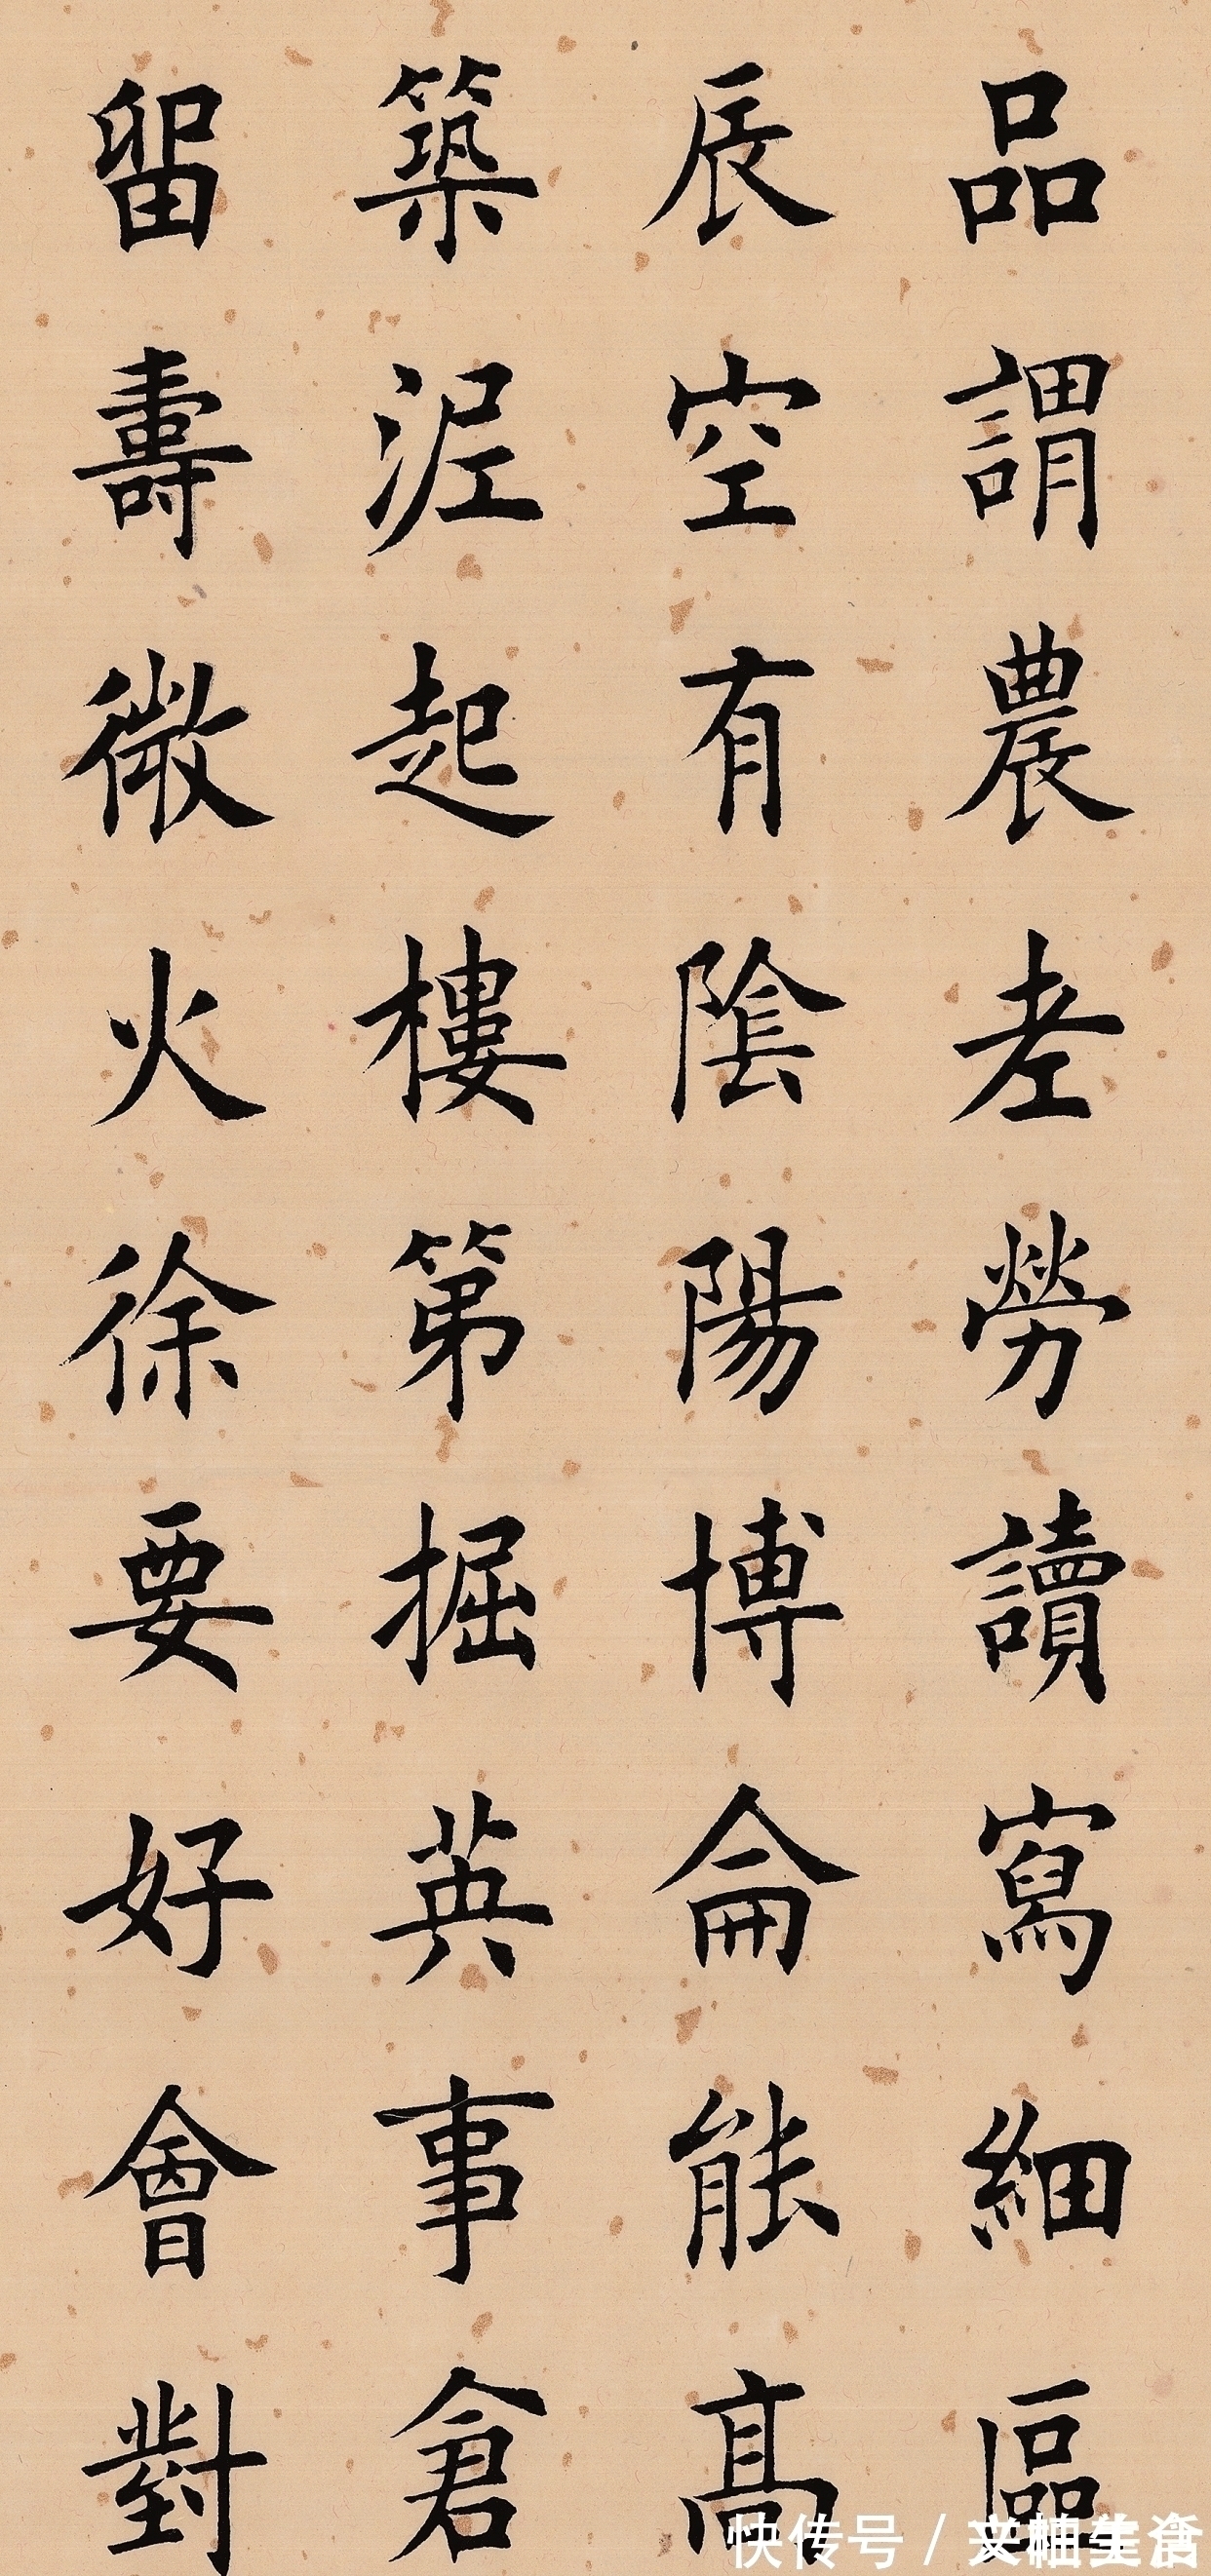 品謂農老勞讀寫細區
辰空有陰陽博侖能高
築泥起樓第掘英事倉
留壽微火徐要好會對
快传号/